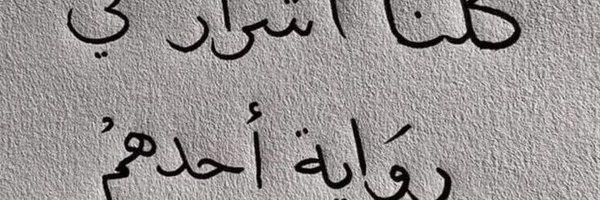 كلنا أشرار في
روَاية أحدهمُ